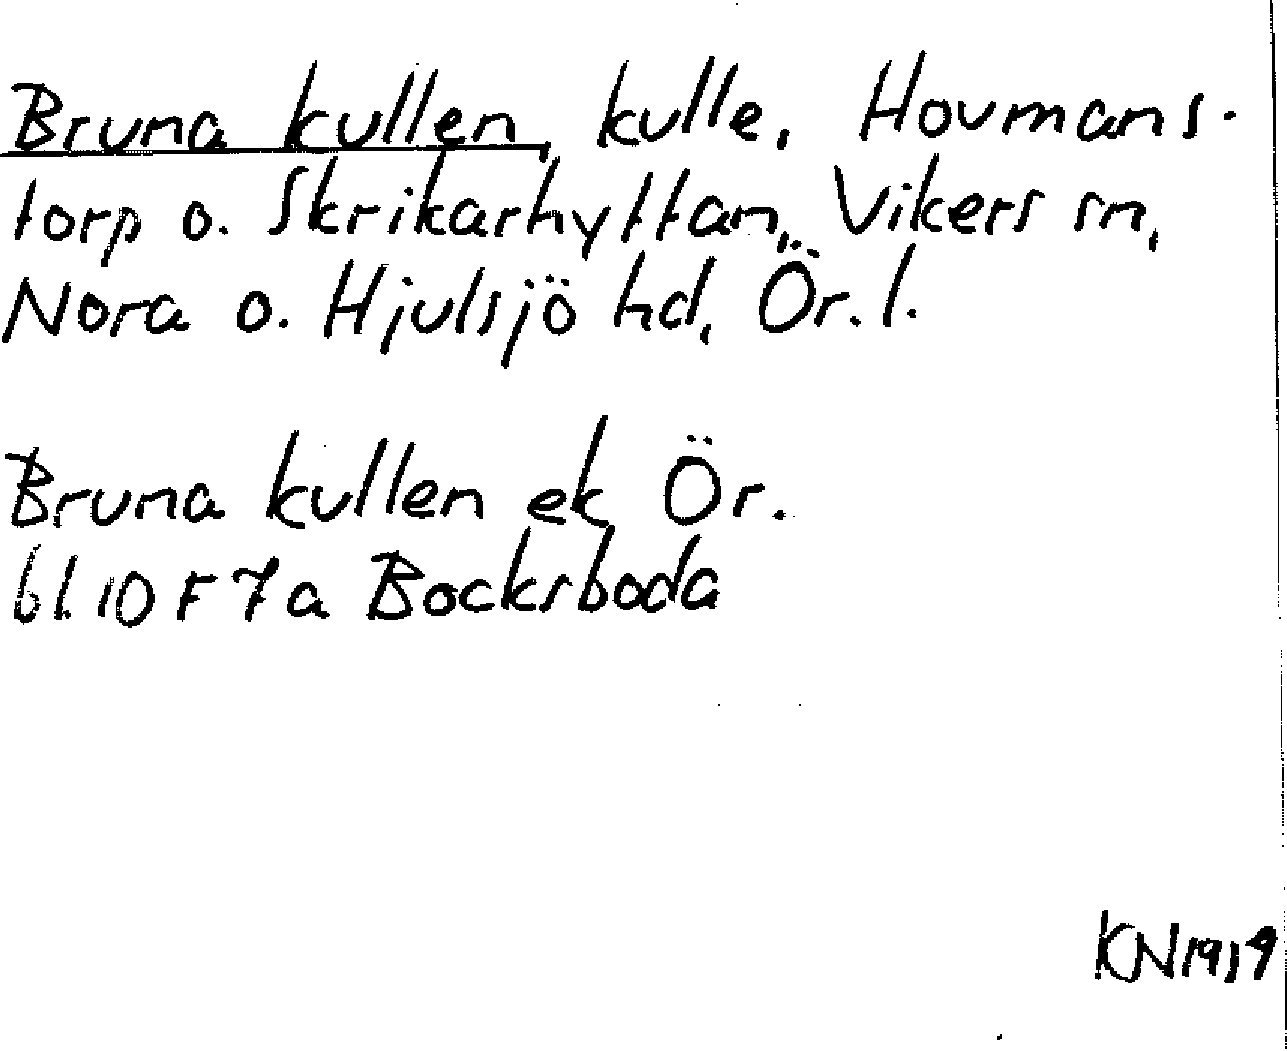 Bruna kullen, kulle, Hovmans-
torp o. Skrikarhyttan, Vikers sn,
Nora o. Hjulsjö hd, Ör. l.
Bruna kullen ek Ör.
61. 10 F 7 a Bocksboda
KN 1919